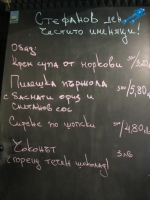 Стефанов ден
Честито именяци!
Обяд:
Крем супа от моркови
Пилешка пържола
с Басмати ориз и
Сметанов сос
Сирене по шопски
4,80лв
Чоконът
(горещ течен шоколад)